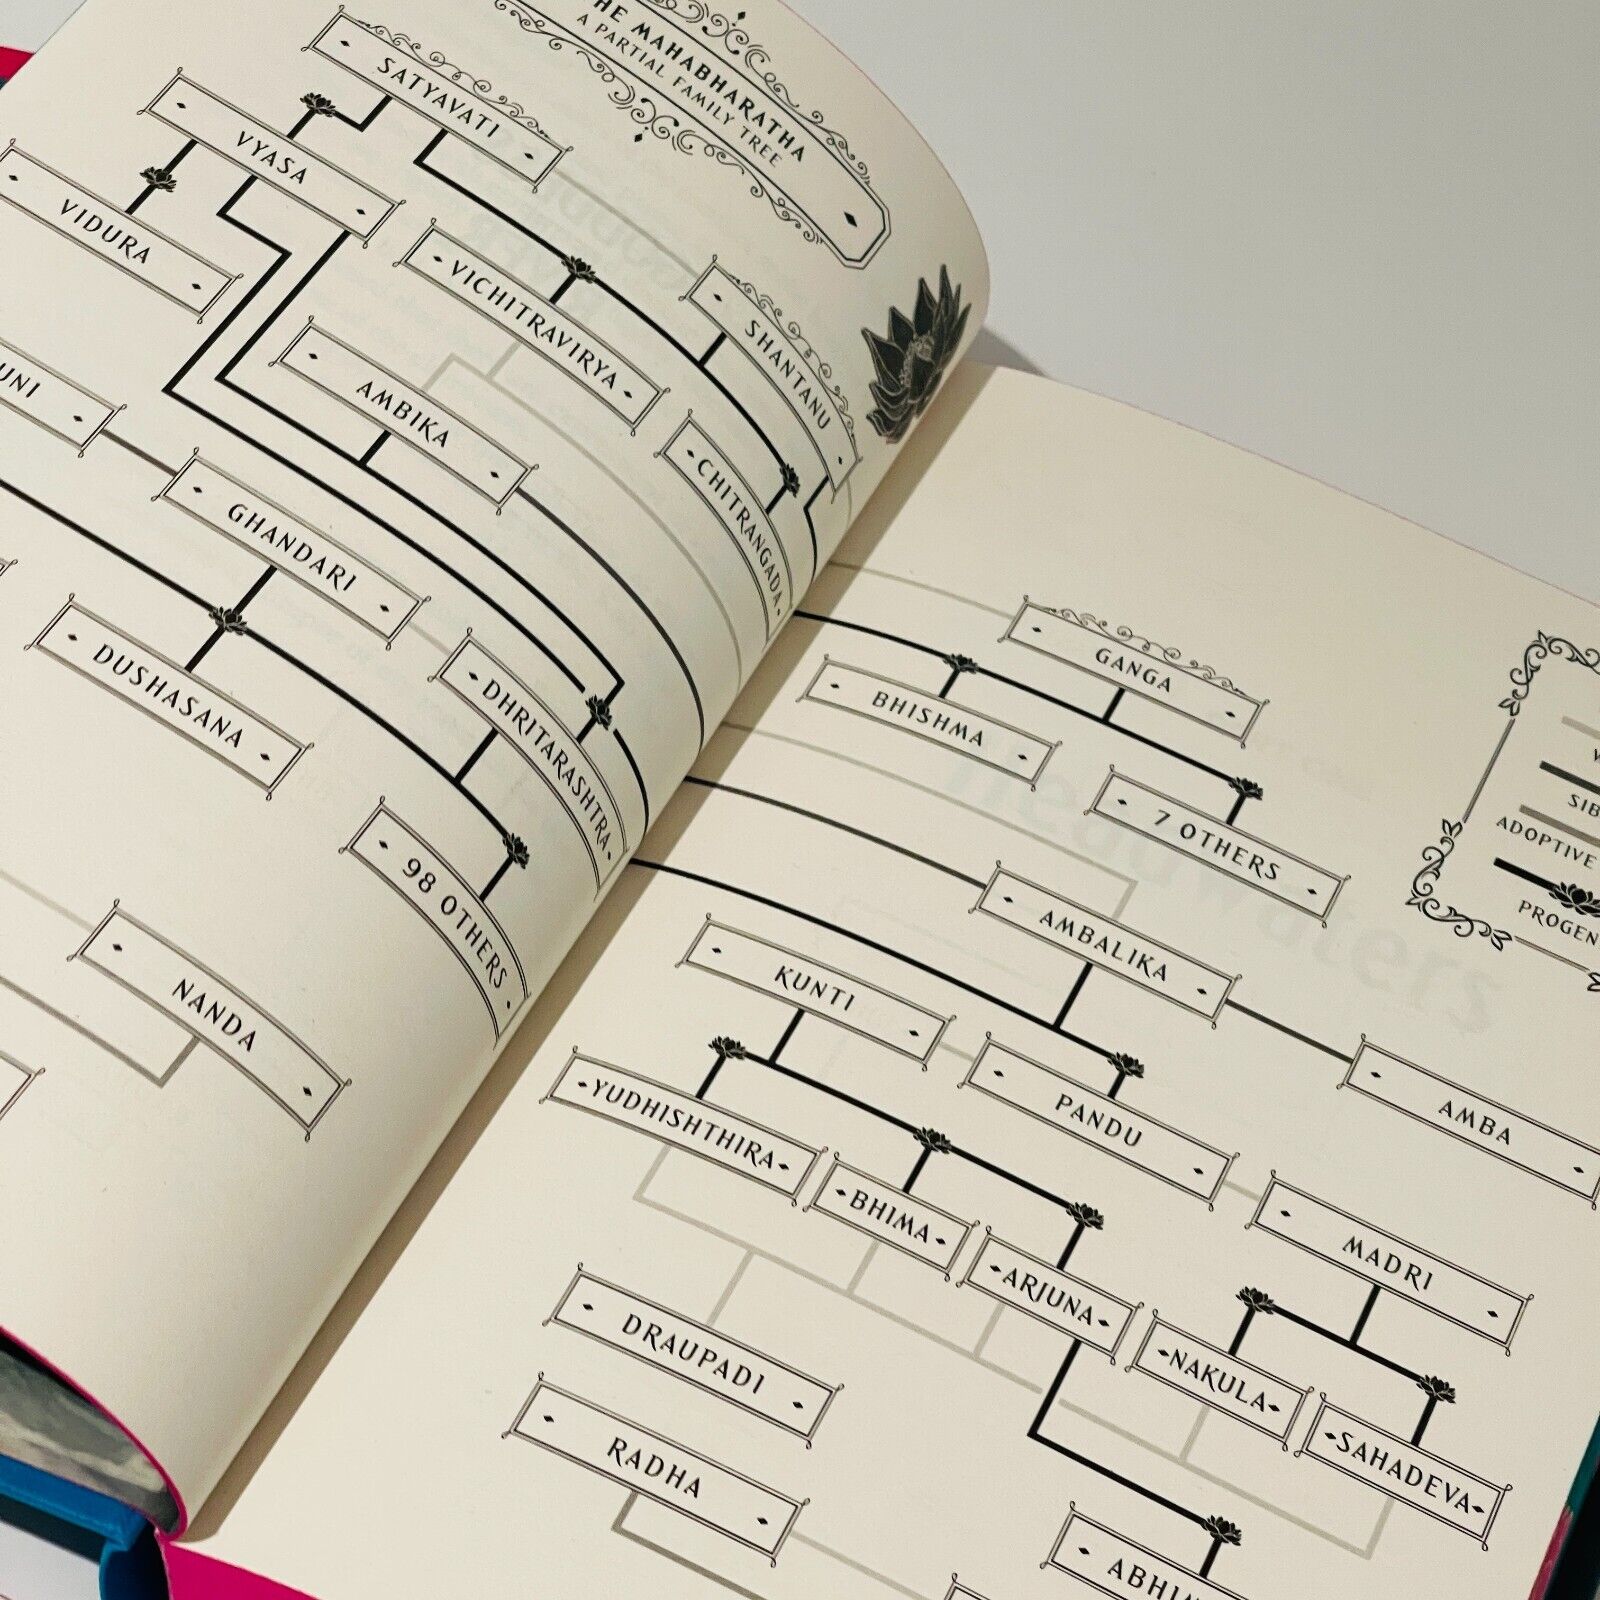 THE MAHABHARATHA
A PARTIAL FAMILY TREE
SATYAVATI
VYASA
VIDURA
VICHITRAVIRYA
SHANTANU
AMBIKA
CHITRANGADA
UNI
GHANDARI
DHRITARASHTRA
DUSHASANA
98 OTHERS
NANDA
GANGA
BHISHMA
7 OTHERS
SIB
ADOPTIVE
PROGEN
AMBALIKA
KUNTI
PANDU
AMBA
YUDHISHTHIRA
BHIMA
ARJUNA
MADRI
NAKULA
SAHADEVA
DRAUPADI
RADHA
ABHI